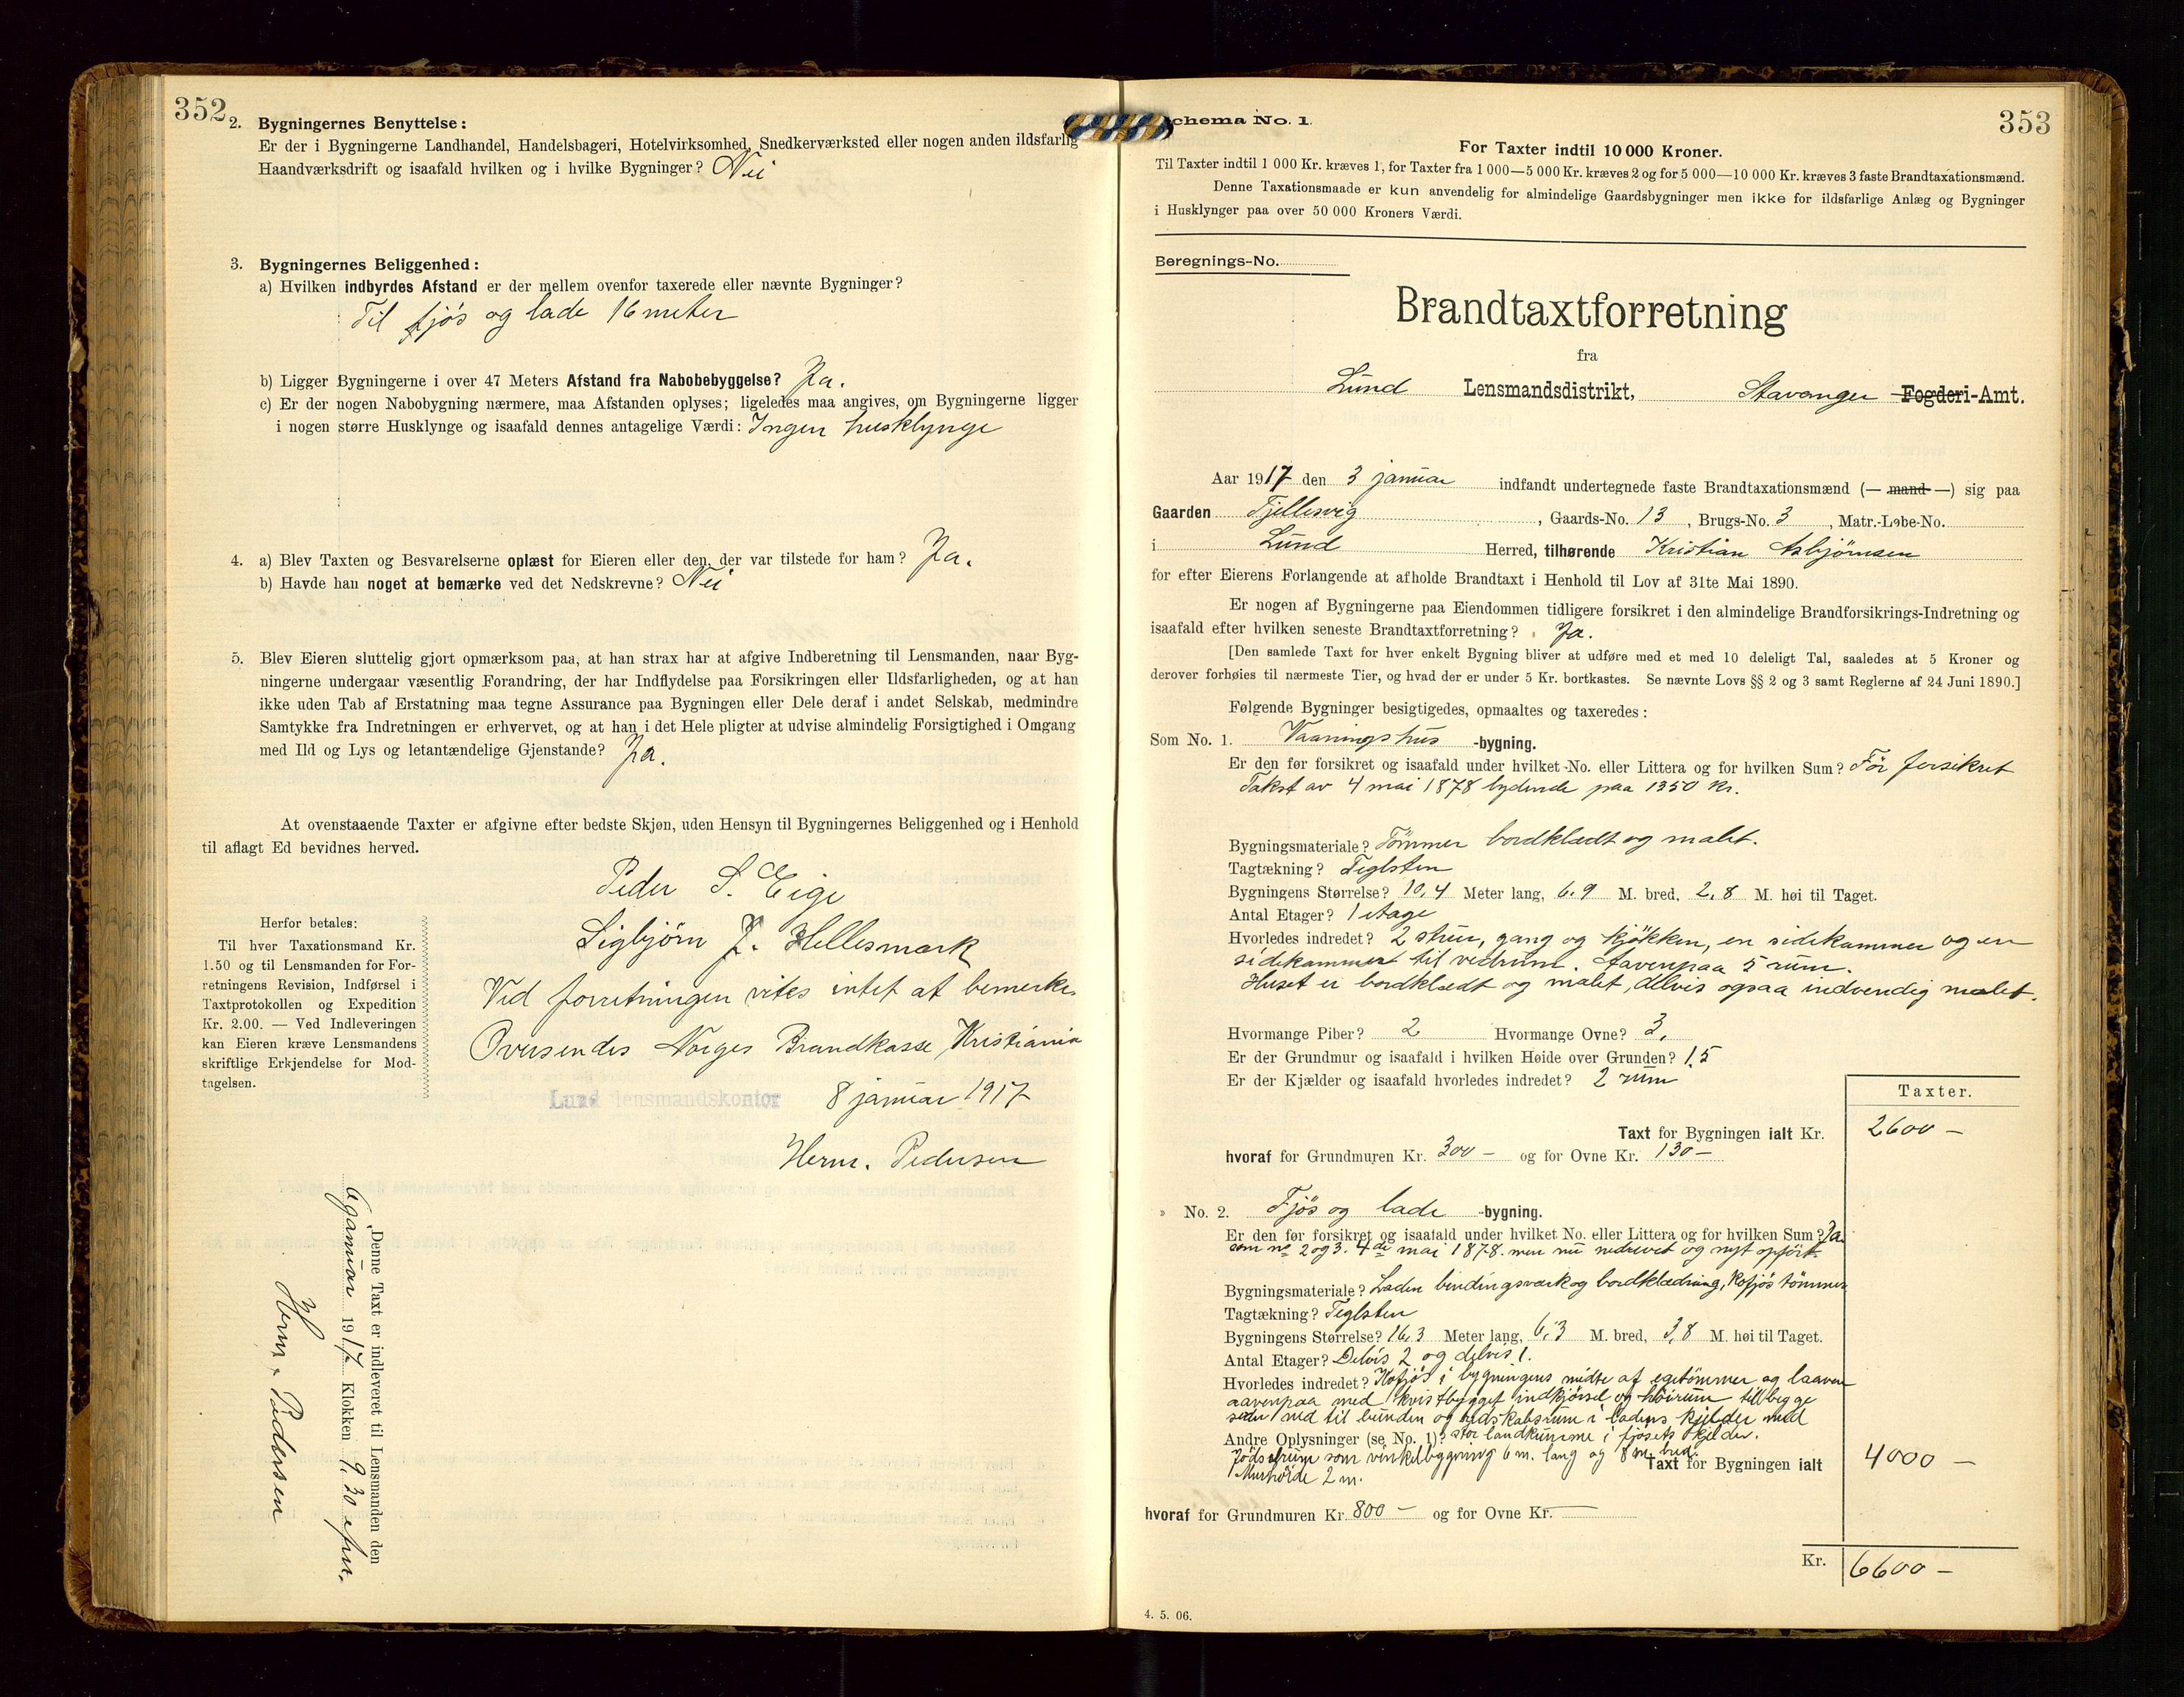 352
2. Bygningernes Benyttelse:
Er der i Bygningerne Landhandel, Handelsbageri, Hotelvirksomhed, Snedkerværksted eller nogen anden ildsfarlig
Haandværksdrift og isaafald hvilken og i hvilke Bygninger? Nei
3. Bygningernes Beliggenhed:
a) Hvilken indbyrdes Afstand er der mellem ovenfor taxerede eller nævnte Bygninger?
Til fjøs og lade 16 meter
b) Ligger Bygningerne i over 47 Meters Afstand fra Nabobebyggelse? Ja.
c) Er der nogen Nabobygning nærmere, maa Afstanden oplyses; ligeledes maa angives, om Bygningerne ligger
i nogen større Husklynge og isaafald dennes antagelige Værdi: Ingen husklynge
4. a) Blev Taxten og Besvarelserne oplæst for Eieren eller den, der var tilstede for ham? Ja.
b) Havde han noget at bemærke ved det Nedskrevne? Nei
5. Blev Eieren sluttelig gjort opmærksom paa, at han strax har at afgive Indberetning til Lensmanden, naar Byg-
ningerne undergaar væsentlig Forandring, der har Indflydelse paa Forsikringen eller Ildsfarligheden, og at han
ikke uden Tab af Erstatning maa tegne Assurance paa Bygningen eller Dele deraf i andet Selskab, medmindre
Samtykke fra Indretningen er erhvervet, og at han i det Hele pligter at udvise almindelig Forsigtighed i Omgang
med Ild og Lys og letantændelige Gjenstande? Ja.
At ovenstaaende Taxter er afgivne efter bedste Skjøn, uden Hensyn til Bygningernes Beliggenhed og i Henhold
til aflagt Ed bevidnes herved.
Peder S. Eige
Sigbjörn J. Hellesmark
Herfor betales:
Til hver Taxationsmand Kr.
1.50 og til Lensmanden for For-
retningens Revision, Indførsel i
Taxtprotokollen og Expedition
Kr. 2.00. — Ved Indleveringen
kan Eieren kræve Lensmandens
skriftlige Erkjendelse for Mod-
tagelsen.
Ved forretningen vites intet at bemerke.
Oversendes Norges Brandkasse, Kristiania
Lund lensmandskontor 8 januar 1917
Herm. Pedersen
Denne Taxt er indleveret til Lensmanden den
6 januar 1917 Klokken 9.30 efm.
Herm. Pedersen
Schema No. 1.
353
For Taxter indtil 10 000 Kroner.
Til Taxter indtil 1 000 Kr. kræves 1, for Taxter fra 1 000—5 000 Kr. kræves 2 og for 5 000—10 000 Kr. kræves 3 faste Brandtaxationsmænd.
Denne Taxationsmaade er kun anvendelig for almindelige Gaardsbygninger men ikke for ildsfarlige Anlæg og Bygninger
i Husklynger paa over 50 000 Kroners Værdi.
Beregnings-No.
Brandtaxtforretning
fra
Lund Lensmandsdistrikt, Stavanger Fogderi-Amt.
Aar 1917 den 3 januar indfandt undertegnede faste Brandtaxationsmænd (— mand —) sig paa
Gaarden Fjellesvig, Gaards-No. 13, Brugs-No. 3, Matr.-Løbe-No.
i Lund Herred, tilhørende Kristian Asbjørnsen
for efter Eierens Forlangende at afholde Brandtaxt i Henhold til Lov af 31te Mai 1890.
Er nogen af Bygningerne paa Eiendommen tidligere forsikret i den almindelige Brandforsikrings-Indretning og
isaafald efter hvilken seneste Brandtaxtforretning? Ja.
[Den samlede Taxt for hver enkelt Bygning bliver at udføre med et med 10 deleligt Tal, saaledes at 5 Kroner og
derover forhøies til nærmeste Tier, og hvad der er under 5 Kr. bortkastes. Se nævnte Lovs §§ 2 og 3 samt Reglerne af 24 Juni 1890.]
Følgende Bygninger besigtigedes, opmaaltes og taxeredes:
Som No. 1. Vaaningshus -bygning.
Er den før forsikret og isaafald under hvilket No. eller Littera og for hvilken Sum? Før forsikret
Takst av 4 mai 1878 lydende paa 1350 kr.
Bygningsmateriale? Tömmer bordklædt og malet.
Tagtækning? Teglsten
Bygningens Størrelse? 10,4 Meter lang, 6.9 M. bred, 2,8 M. høi til Taget.
Antal Etager? 1 etage
Hvorledes indredet? 2 stuer, gang og kjøkken, en sidekammer og en
sidekammer til vedrum. Aavenpaa 5 rum.
Huset er bordklædt og malet, delvis ogsaa indvendig malet.
Hvormange Piber? 2 Hvormange Ovne? 3.
Er der Grundmur og isaafald i hvilken Høide over Grunden? 1.5
Er der Kjælder og isaafald hvorledes indredet? 2 rum
Taxter.
Taxt for Bygningen ialt Kr. 2600 —
hvoraf for Grundmuren Kr. 300 — og for Ovne Kr. 130 —
» No. 2. Fjøs og lade -bygning.
Er den før forsikret og isaafald under hvilket No. eller Littera og for hvilken Sum? Ja
som no 2 og 3. 4de mai 1878. men nu nedrevet og nyt opført.
Bygningsmateriale? Laden bindingsværk og bordklædning, kofjøs tömmer
Tagtækning? Teglsten
Bygningens Størrelse? 16,3 Meter lang, 6,3 M. bred, 3,8 M. høi til Taget.
Antal Etager? Delvis 2 og delvis 1.
Hvorledes indredet? Kofjøs i bygningens midte af egetömmer og laaven
aavenpaa med kvistbygget indkjørsel og høirum til begge
sider ned til bunden og redskabsrum i ladens kjelder med
Andre Oplysninger (se No. 1)? stor landkumme i fjøsets kjelder.
som vinkelbygning 6 m. lang og 8 m. bred.
Murhöide 2 m.
Taxt for Bygningen ialt 4000 —
hvoraf for Grundmuren Kr. 800 — og for Ovne Kr. —
Kr. 6600 —
4. 5. 06.